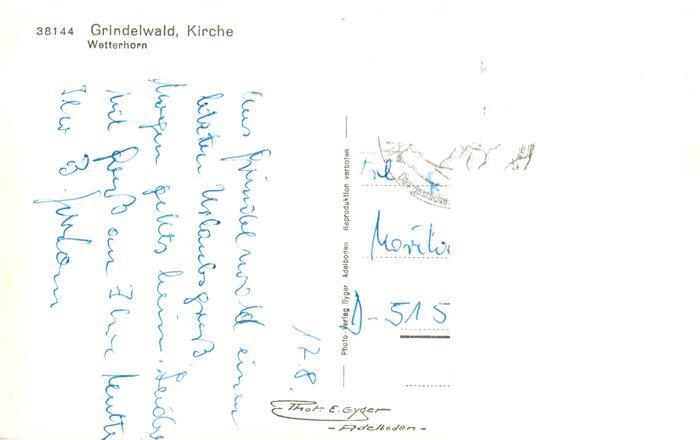 38144 Grindelwald, Kirche
Wetterhorn
17.8.
Aus Grindelwald einen
letzten Urlaubsgruß
Morgen gehts heim. Leider
Mit Gruß an Ihre Mutte
Ihr B.
Frl
D-515
Photo-Verlag Gyger Adelboden Reproduktion verboten
Phot. E. Gyger
- Adelboden -